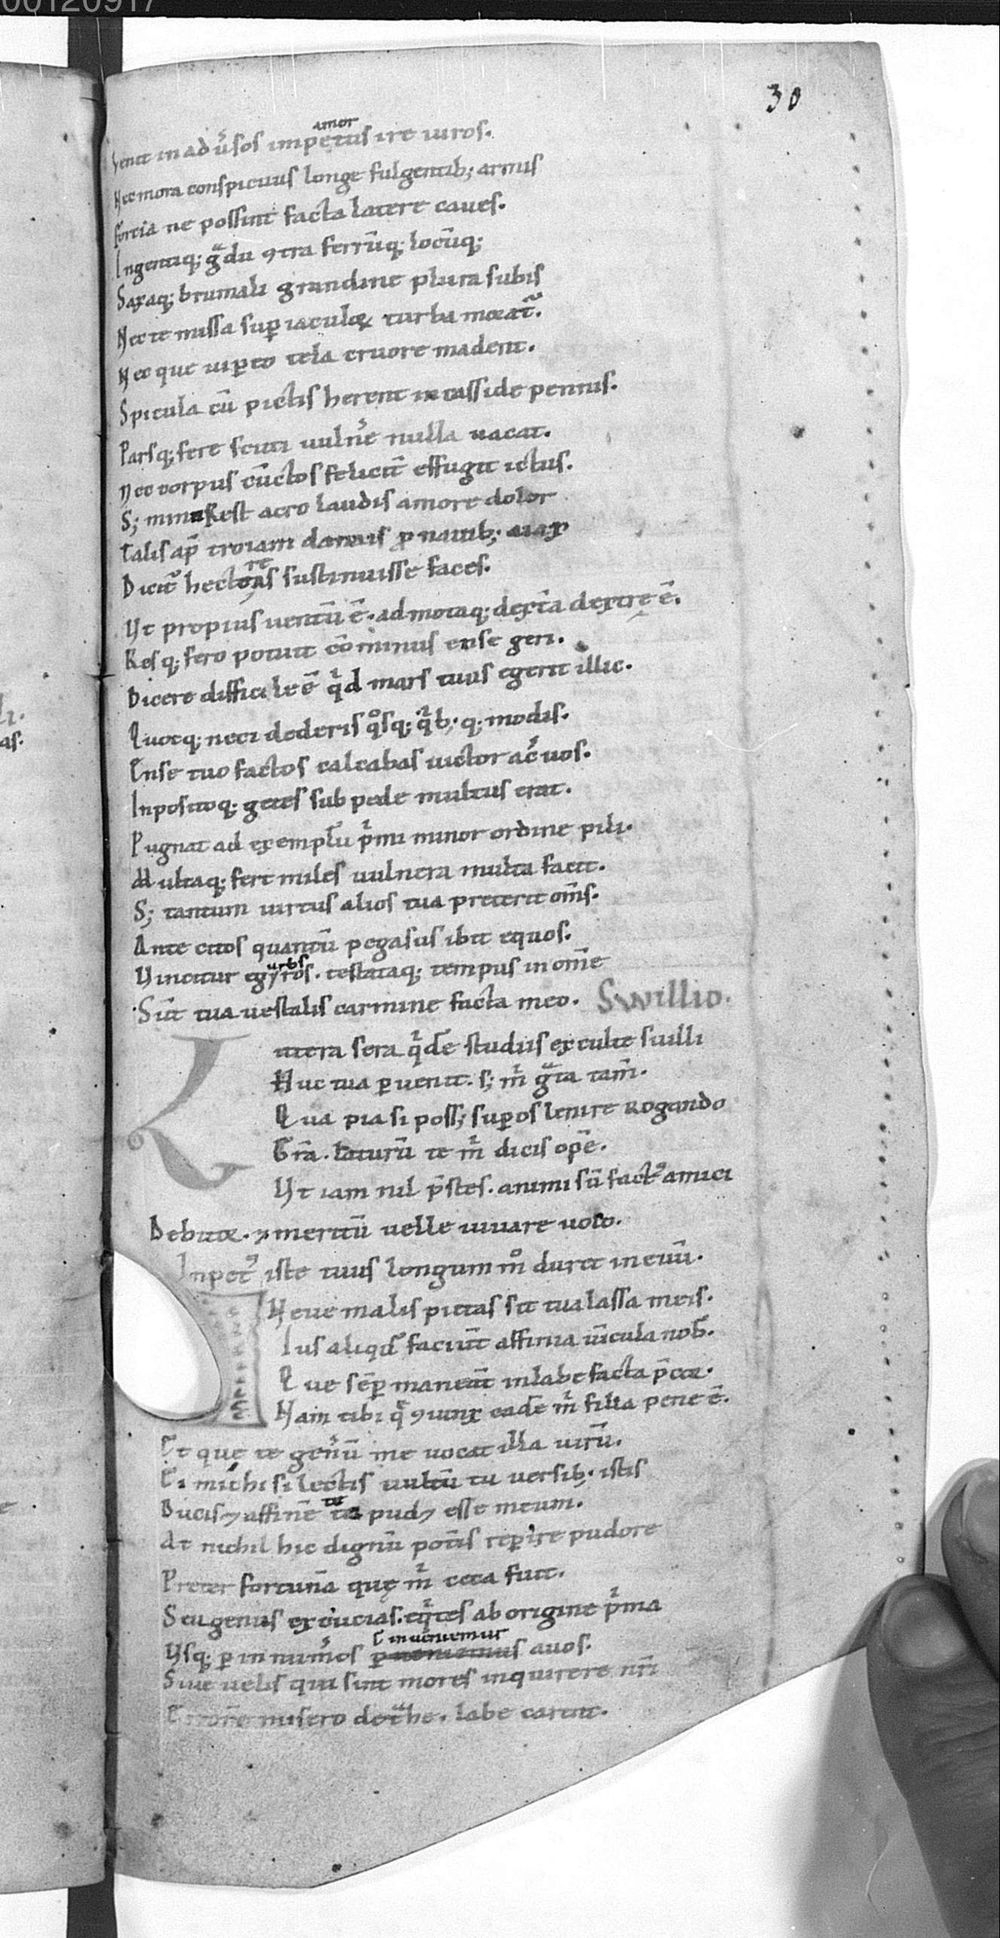 00120917
30
amor
Venit in ad ũsos impetus ire uiros.
Nec mora conspicuus longe fulgentib; armis
Fortia ne possint facta latere caues.
Ingentiq; g̃du ꝯtra ferrũq; locũq;
Saxaq; brumali grandine plura subis
Nec te missa suꝑ iaculoꝝ turba morat᷑.
Nec que uiꝑeo tela cruore madent.
Spicula cũ pictis herent in casside pennis.
Parsq; fere scuti uulnẽ nulla uacat.
Nec corpus cũctos felicit̃ effugit ictus.
S; minꝰ est acro laudis amore dolor
Talis ap̃ troiam danais ꝓ nauib; aiax
re
Dicit᷑ hectoras sustinuisse faces.
Vt propius uentũ ẽ. ad motaq; dext̃a dextrę ẽ.
Resq; fero potuit cõminus ense geri.
Dicere difficile ẽ qͥd mars tuus egerit illic.
Quotq; neci dederis qͦsq; qͥb; q; modis.
Ense tuo factos calcabas uictor ac̃uos.
Inpositoq; getes sub pede multus erat.
Pugnat ad exemplũ pͥmi minor ordine pili.
Multaq; fert miles uulnera multa facit.
S; tantum uirtus alios tua preterit om̃s.
Ante citos quantũ pegasus ibit equos.
urbs
Vincitur egyros. testataq; tempus in om̃e
Sũt tua uestalis carmine facta meo. Swillio.
Littera sera qͥdẽ studiis exculte suilli
Huc tua ꝑuenit. s; m̃ gͣta tam̃.
Qua pia si poss; suꝑos lenire rogando
Gr̃a. laturũ te m̃ dicis opẽ.
Vt iam nil p̃stes. animi sũ factꝰ amici
Debitoꝝ. ⁊ meritũ uelle iuuare uoco.
Inpetꝰ iste tuus longum mͦ duret in euũ.
Neue malis pietas sit tua lassa meis.
Ius aliqd̃ faciũt affinia uĩcula nob̃.
Que sẽꝑ maneãt inlabefacta p̃cor.
Nam tibi q̃ ꝯiunx eadẽ m̃ filia pene ẽ.
Et que te gen̄ũ me uocat illa uirũ.
Ei michi si lectis uultũ tu uersib; istis
tu
Ducis ⁊ affinẽ te pud; esse meum.
At nichil hic dignũ pot̃is reꝑire pudore
Preter fortunã quę m̃ ceca fuit.
Seu genus excucias. eqͥtes ab origine pͥma
inueniemur
Vsq; ꝑ in num̃os auos.
Siue uelis qui sint mores inquirere nr̃i
Errorẽ misero det̃he. labe carent.